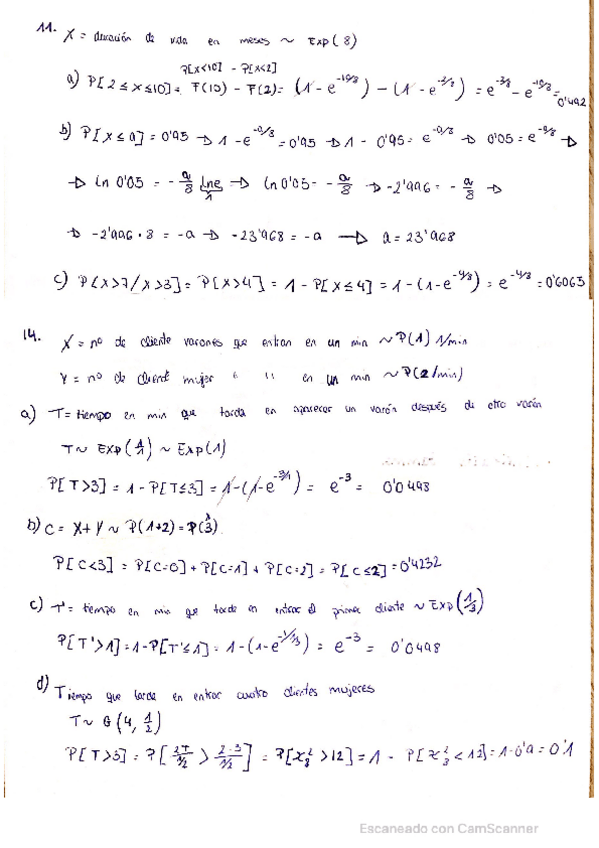 11. X = duración de vida en meses ~ Exp(8)
P[X<10] - P[X<2]
a) P[2≤X≤10] = F(10) - F(2) = (1-e^-10/8) - (1-e^-2/8) = e^-2/8 - e^-10/8 = 0'492
b) P[X≤a] = 0'95 → 1-e^-a/8 = 0'95 → 1-0'95 = e^-a/8 → 0'05 = e^-a/8 →
→ ln 0'05 = -a/8 lne 1 → ln 0'05 = -a/8 → -2'996 = -a/8 →
→ -2'996 · 8 = -a → -23'968 = -a → a = 23'968
c) P(X>7/X>3] = P[X>4] = 1 - P[X≤4] = 1-(1-e^-4/8) = e^-4/8 = 0'6065
14. X = nº de cliente varones que entran en un min ~ P(1) 1/min
Y = nº de client mujer " " en un min ~ P(2/min)
a) T = tiempo en min que tarda en aparecer un varón después de otro varón
T ~ Exp(1/1) ~ Exp(1)
P[T>3] = 1 - P[T≤3] = 1-(1-e^-3/1) = e^-3 = 0'0498
b) C = X+Y ~ P(1+2) = P(3) λ
P[C<3] = P[C=0] + P[C=1] + P[C=2] = P[C≤2] = 0'4232
c) T' = tiempo en min que tarda en entrar el primer cliente ~ Exp(1/3)
P[T'>1] = 1-P[T'≤1] = 1-(1-e^-1/1/3) = e^-3 = 0'0498
d) Tiempo que tarda en entrar cuatro clientes mujeres
T ~ G(4, 1/2)
P[T>3] = P[2T/1/2 > 2·3/1/2] = P[χ²8 >12] = 1 - P[χ²8 <12] = 1-0'9 = 0'1
Escaneado con CamScanner